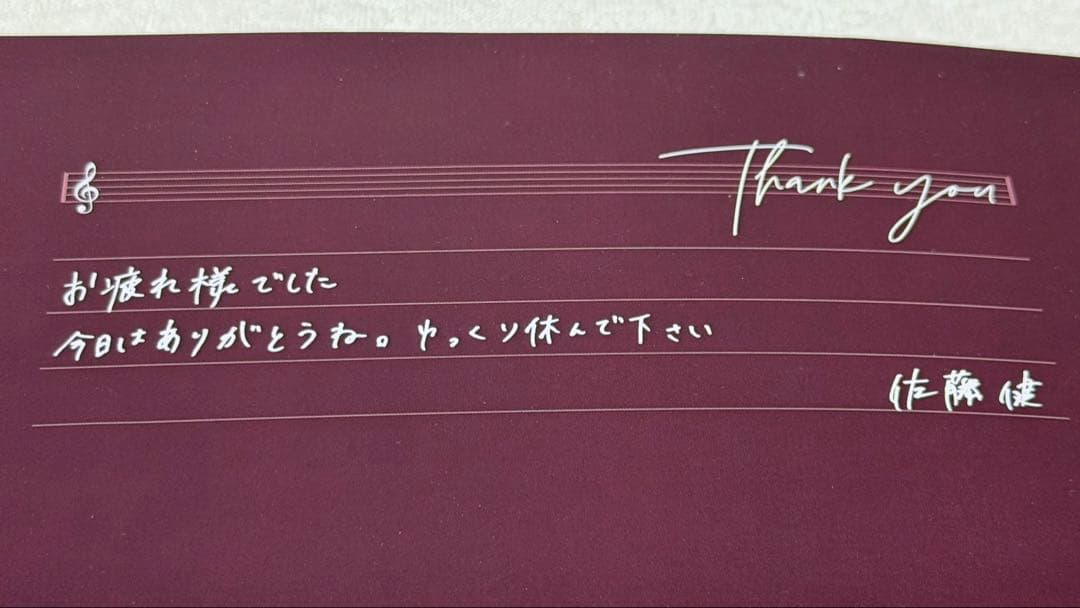 Thank you
お疲れ様でした
今日はありがとうね。ゆっくり休んで下さい
佐藤 健